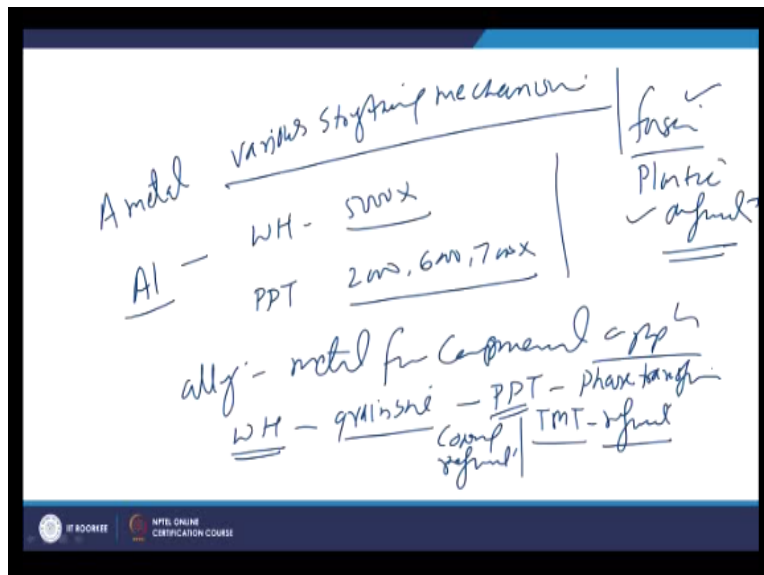 A metal various strgthning mechanism
fusi
Plastic
Al - WH - 5000x
PPT 2000, 6000, 7000x
ally - metal for component appn
WH - grain size - PPT - phase transfn
TMT - refinmt
IIT ROORKEE NPTEL ONLINE
CERTIFICATION COURSE